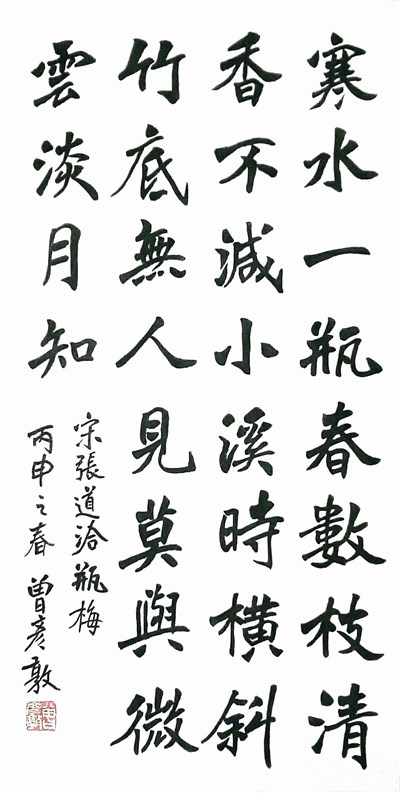 寒水一瓶春數枝清
香不減小溪時橫斜
竹底無人見莫與微
雲淡月知
宋張道洽瓶梅
丙申之春曾彥敦